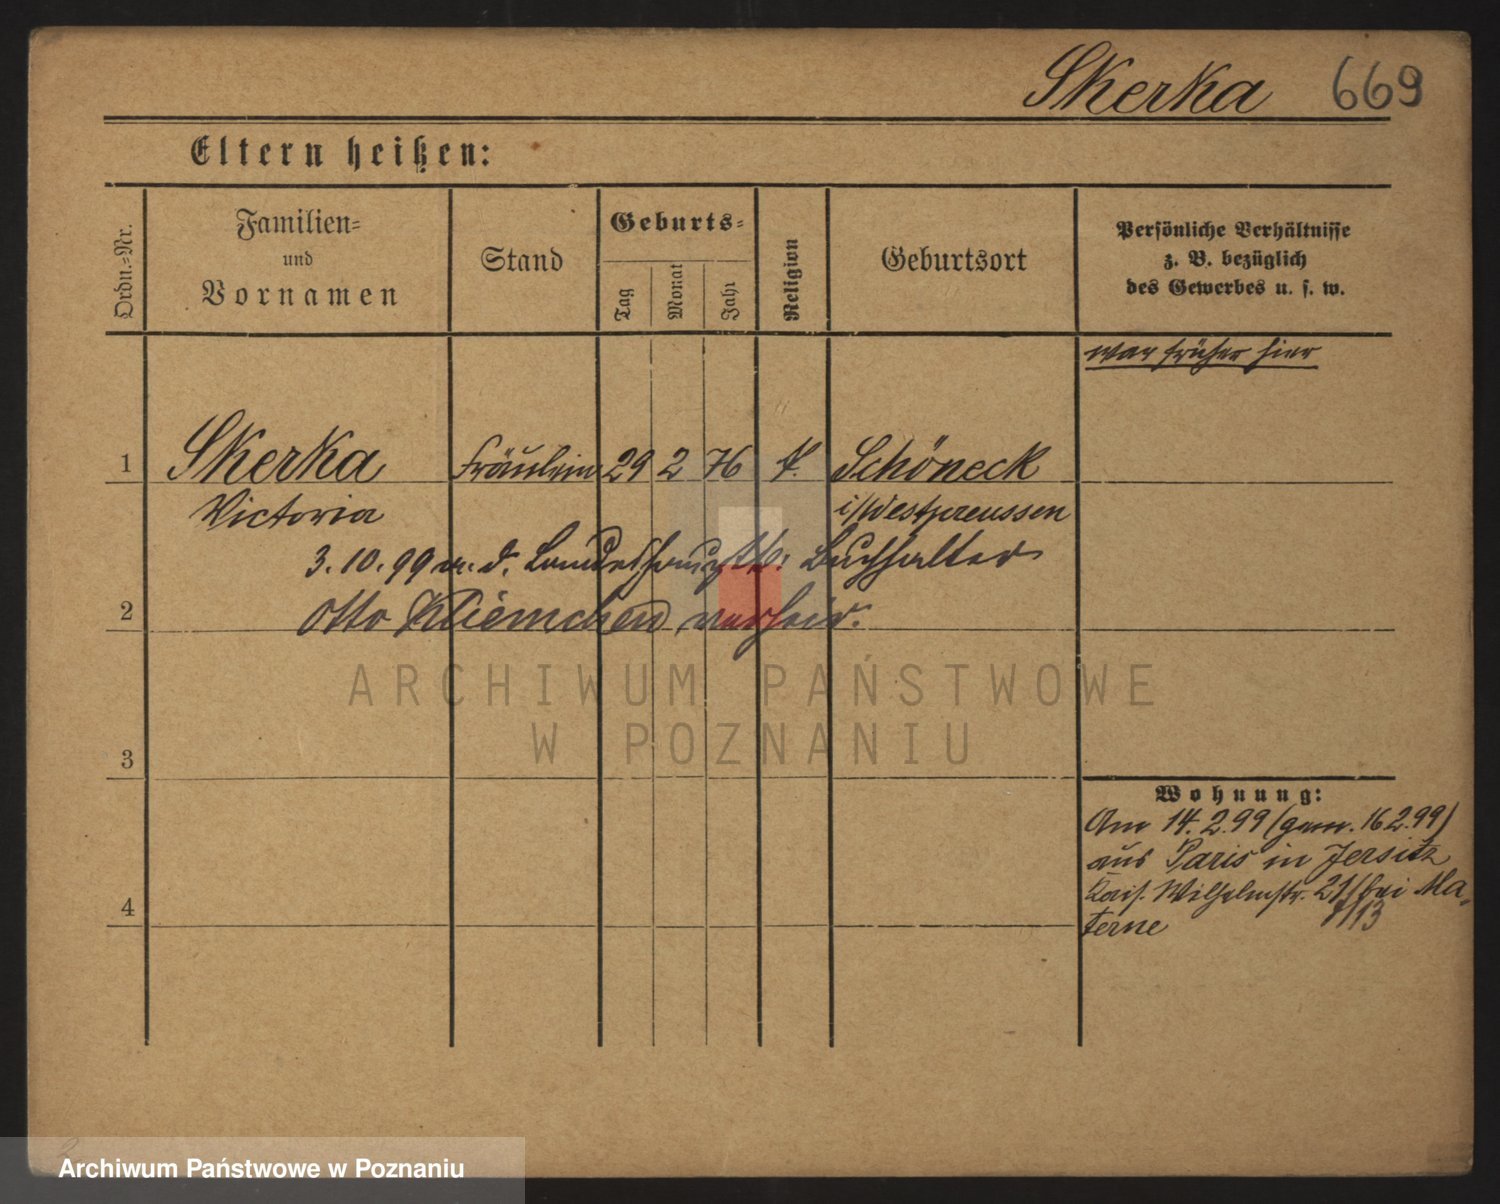 Skerka 669
Eltern heißen:
Ordn.-Nr.
Familien-
und
Vornamen
Stand
Geburts-
Tag
Monat
Jahr
Religion
Geburtsort
Persönliche Verhältnisse
z. B. bezüglich
des Gewerbes u. s. w.
war früher hier
1 Skerka Fräulein 29 2 76 k. Schöneck
Victoria i/Westpreussen
3.10.99 m. d. Landeshauptk: Buchhalter
2 Otto Kliemchen verheir.
ARCHIWUM PAŃSTWOWE
W POZNANIU
3
Wohnung:
Am 14.2.99 (gem. 16 2.99)
aus Paris in Jersitz
Kais. Wilhelmstr. 21 bei Ma-
terne 7/13
4
Archiwum Państwowe w Poznaniu